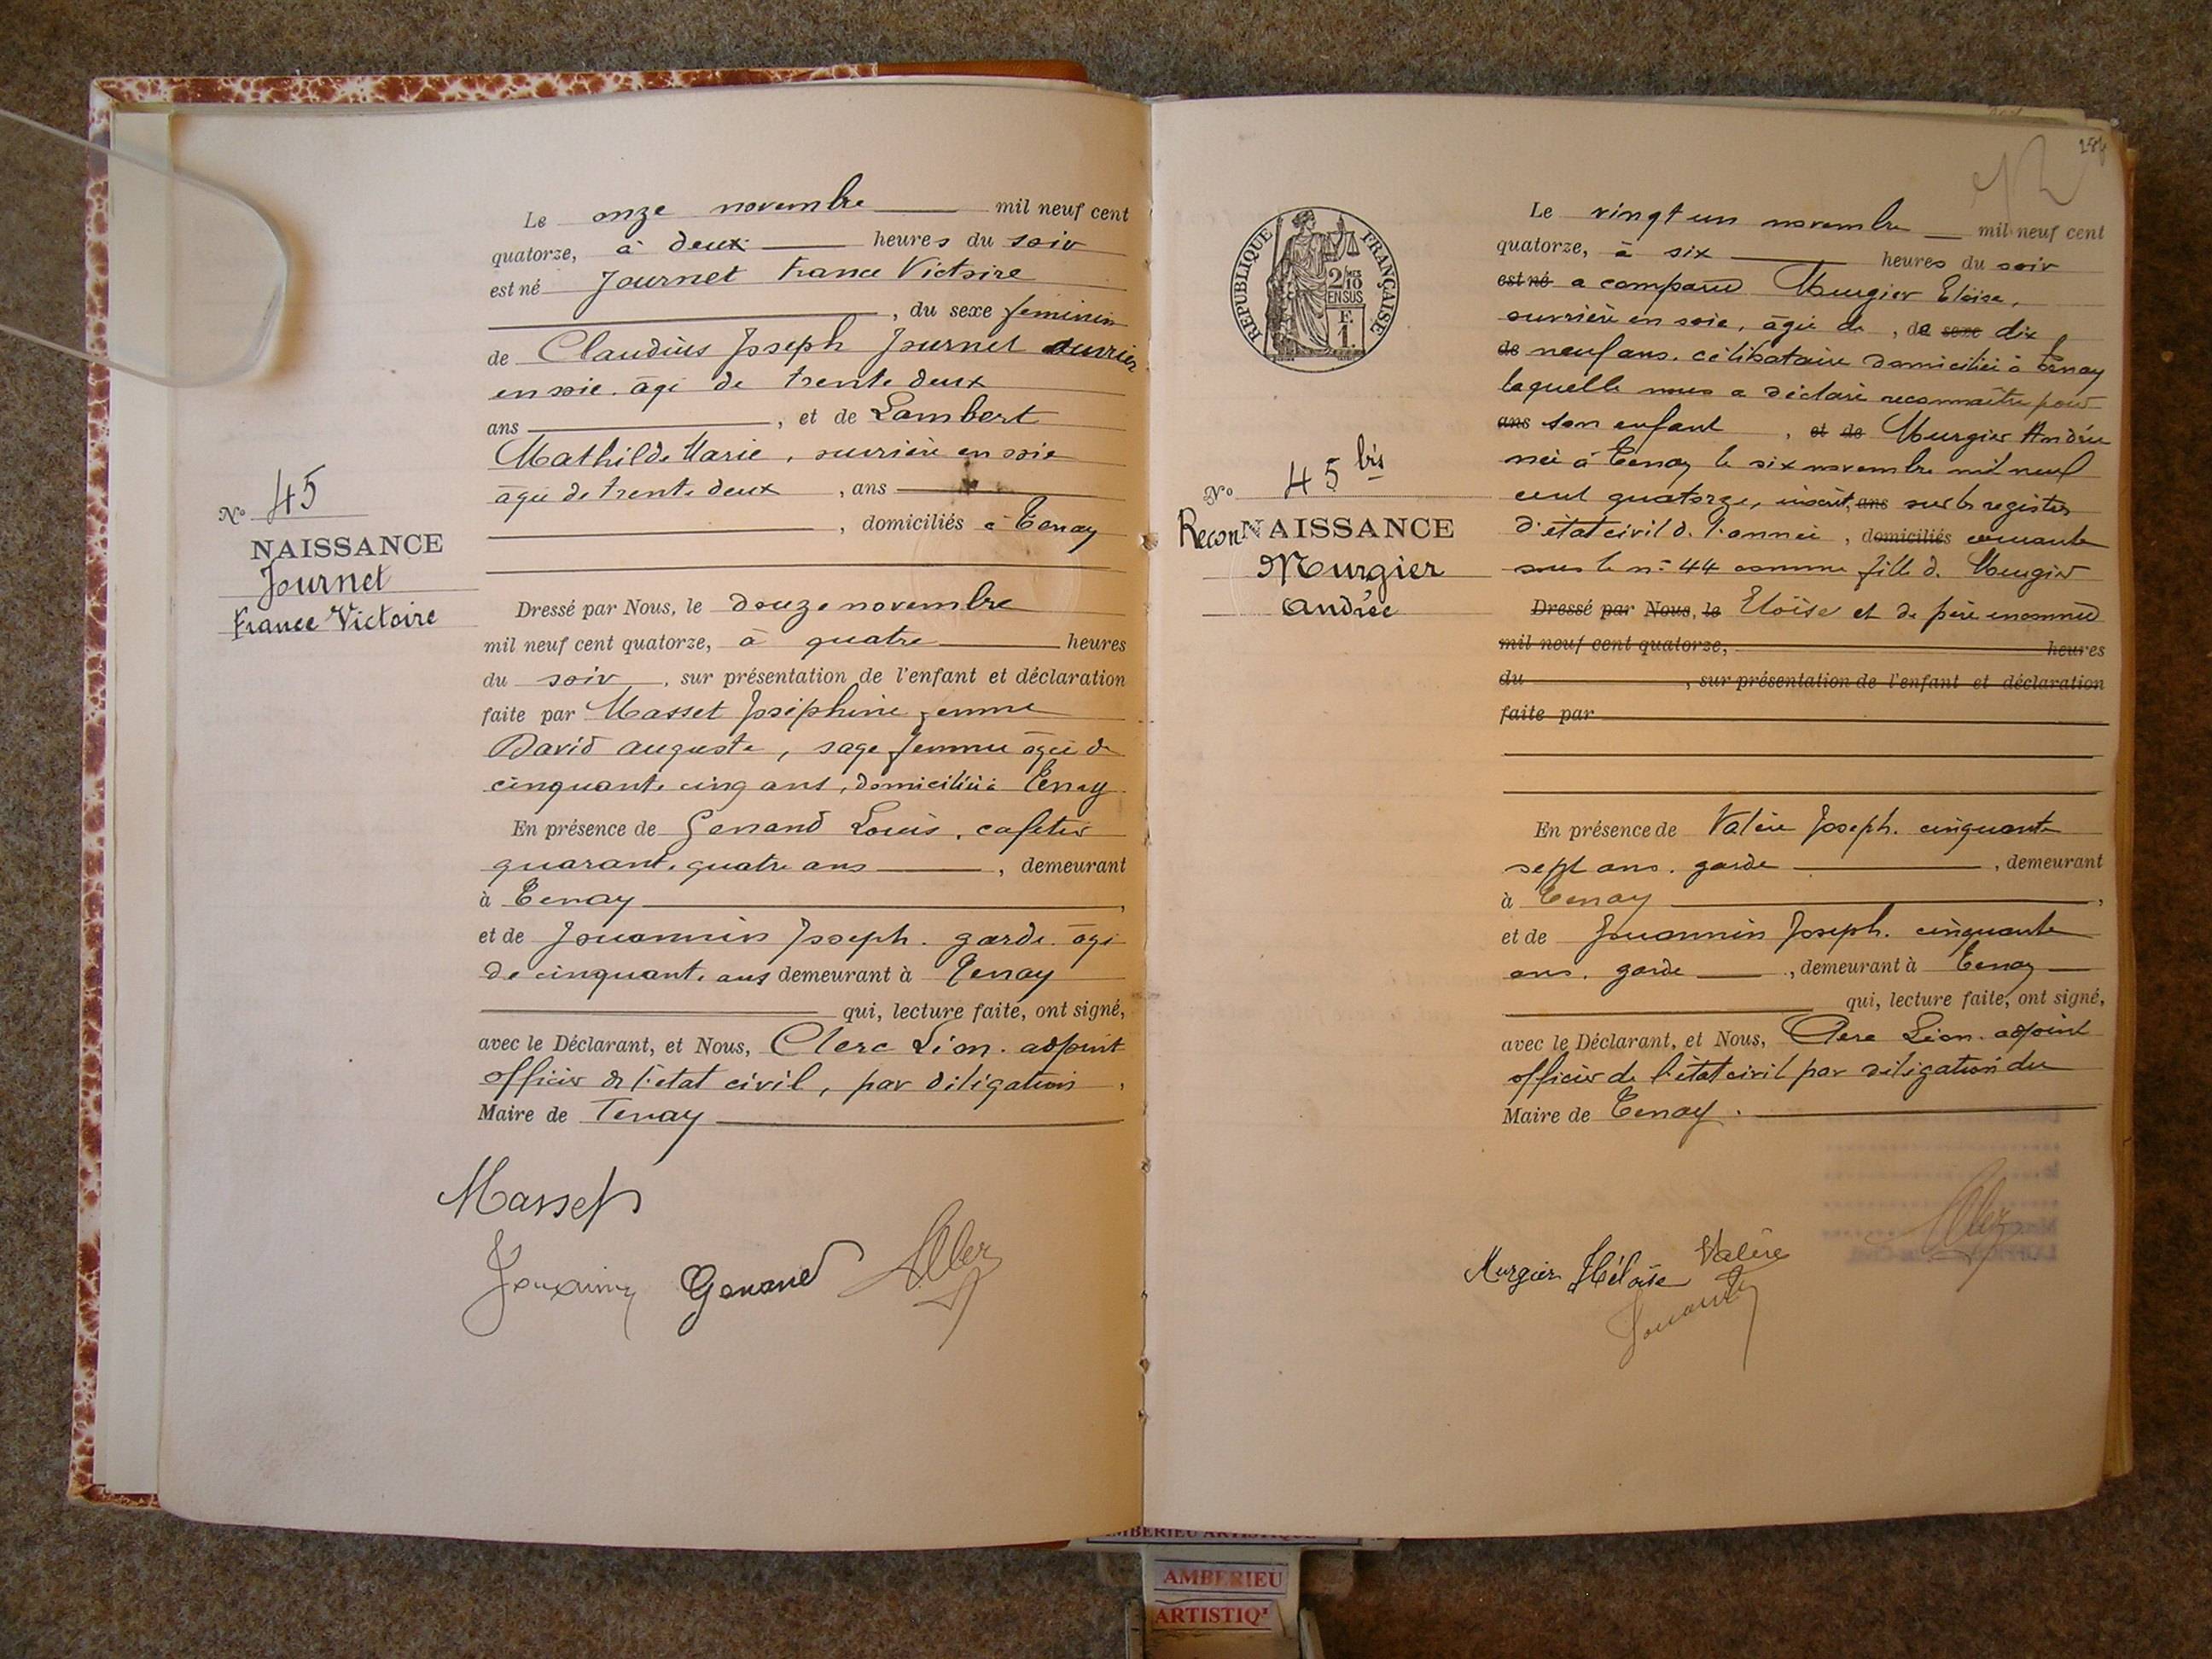 N° 45
NAISSANCE
Journet
France Victoire
Le onze novembre mil neuf cent
quatorze, à deux heures du soir
est né Journet France Victoire
, du sexe feminin
de Claudius Joseph Journet ouvrier
en soie. âgé de trente deux
ans , et de Lambert
Mathilde Marie, ouvrière en soie
âgée de trente deux , ans
, domiciliés à Tenay
Dressé par Nous, le douze novembre
mil neuf cent quatorze, à quatre heures
du soir , sur présentation de l'enfant et déclaration
faite par Masset Joséphine femme
David auguste, sage femme âgée de
cinquante cinq ans, domiciliée à Tenay
En présence de Genand Louis, cafetier
quarante quatre ans , demeurant
à Tenay ,
et de Jouannin Joseph. garde. âgé
de cinquante ans demeurant à Tenay
qui, lecture faite, ont signé,
avec le Déclarant, et Nous, Clerc Léon. adjoint
officier de l'état civil, par délégation ,
Maire de Tenay
Masset
Genand
184
REPUBLIQUE FRANÇAISE
2/10 MES
EN SUS
F.
1.
N° 45 bis
ReconNAISSANCE
Murgier
Andrée
Le vingt un novembre mil neuf cent
quatorze, à six heures du soir
est né a comparu Murgier Eloïse,
ouvrière en soie, âgée de , de sexe dix
de neuf ans. célibataire domiciliée à Tenay
laquelle nous a déclaré reconnaître pour
ans son enfant , et de Murgier Andrée
née à Tenay le six novembre mil neuf
cent quatorze, inscrit, ans sur les registres
d'état civil de l'année , domiciliés courante
sous le n° 44 comme fille de Murgier
Dressé par Nous, le Eloïse et de père inommé
mil neuf cent quatorze, heures
du , sur présentation de l'enfant et déclaration
faite par
En présence de Valère Joseph. cinquante
sept ans. garde , demeurant
à Tenay ,
et de Jouannin Joseph. cinquante
ans. garde , demeurant à Tenay
qui, lecture faite, ont signé,
avec le Déclarant, et Nous, Clerc Léon. adjoint
officier de l'état civil par délégation du
Maire de Tenay.
Murgier Héloïse Valère
AMBERIEU ARTISTIQUE
AMBERIEU
ARTISTIQ